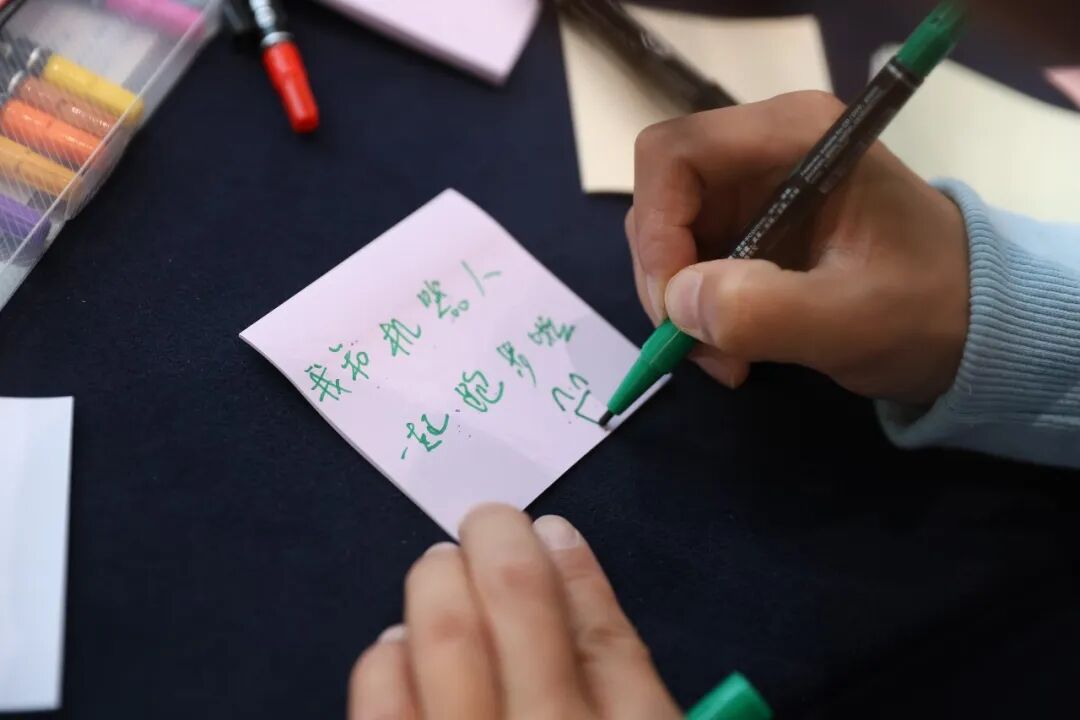 我和机器人
一起跑步啦